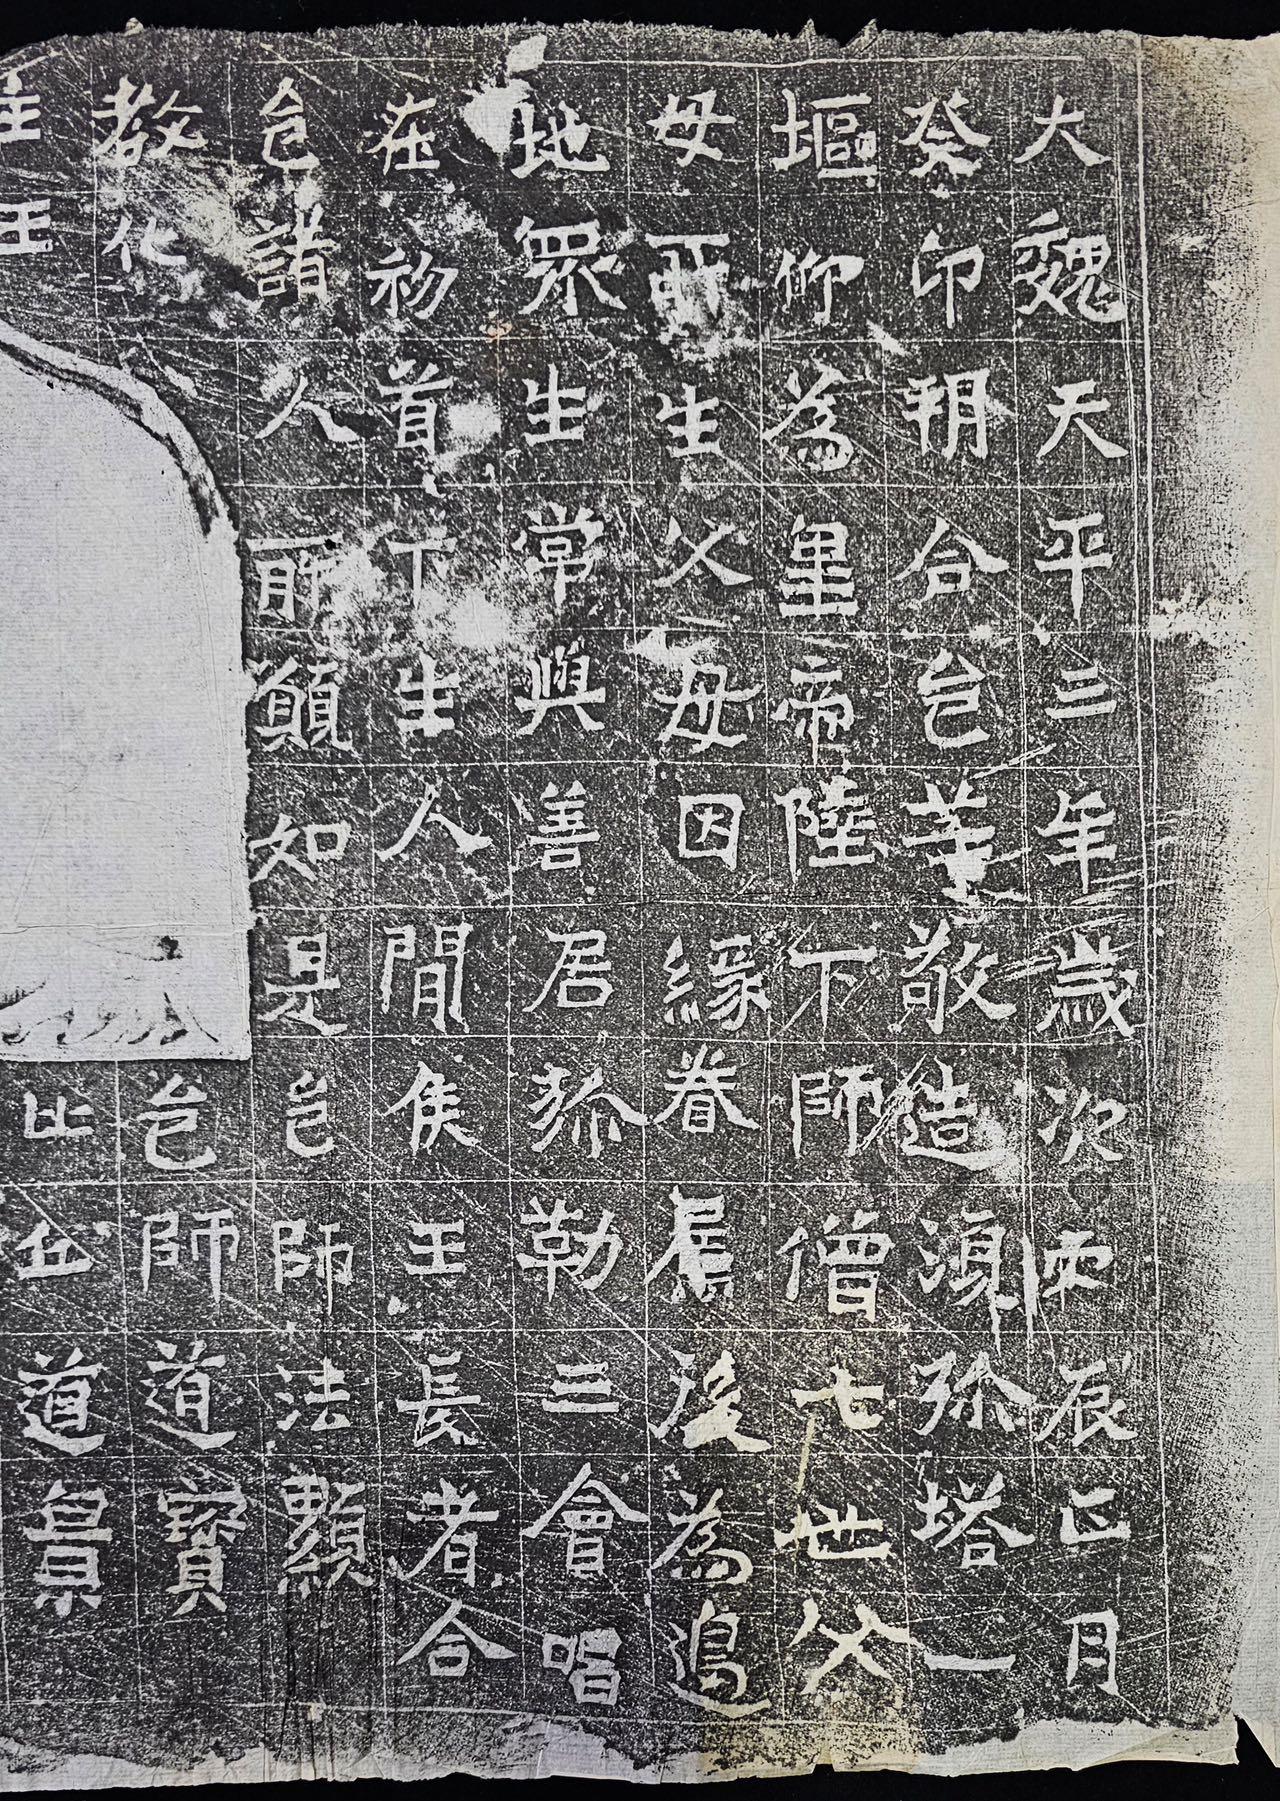 大魏天平三年歲次丙辰正月
癸卯朔合邑等敬造湏弥塔一
塸仰為皇帝陛下師僧七世父
母所生父母因緣眷属後為邊
地眾生常與善居弥勒三會唱
在初首下生人間侯王長者合
邑諸人所願如是邑師法顯
教化邑師道寳
主王比丘道